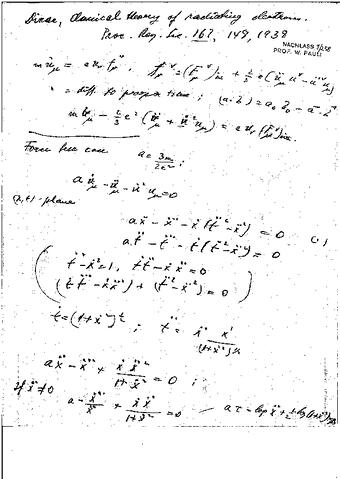 Dirac, Classical theory of radiating electrons.
Proc. Roy. Soc. 167, 148, 1938
NACHLASS
PROF. W. PAULI
m u̇_μ = e u_ν f_μ^ν , f_μ^ν = (f_μ^ν)_in + 2/3 e (ü_μ u^ν − ü^ν u_μ)
· = diff. to proper time ; (a·b) = a₀b₀ −
m u̇_μ − 2/3 e² (ü_μ + u̇² u_μ) = e u_ν (f_μ^ν)_in.
Force free case a = 3m/2e²
a u̇_μ − ü_μ − u̇² u_μ = 0
(x,t)-plane
a ẍ − x⃛ − ẋ (ẗ² − ẍ²) = 0
a ẗ − t⃛ − ṫ (ẗ² − ẍ²) = 0 (1)
ṫ² − ẋ² = 1, ṫ ẗ − ẋ ẍ = 0
(ṫ t⃛ − ẋ x⃛) + (ẗ² − ẍ²) = 0
ṫ = (1+ẋ²)^½ ; ẗ = ẋ ẍ / (1+ẋ²)^½
a ẍ − x⃛ + ẋ ẍ² / (1+ẋ²) = 0 ;
If ẍ ≠ 0 a − x⃛/ẍ + ẋ ẍ / (1+ẋ²) = 0 aτ − log ẍ + ½ log (1+ẋ²)